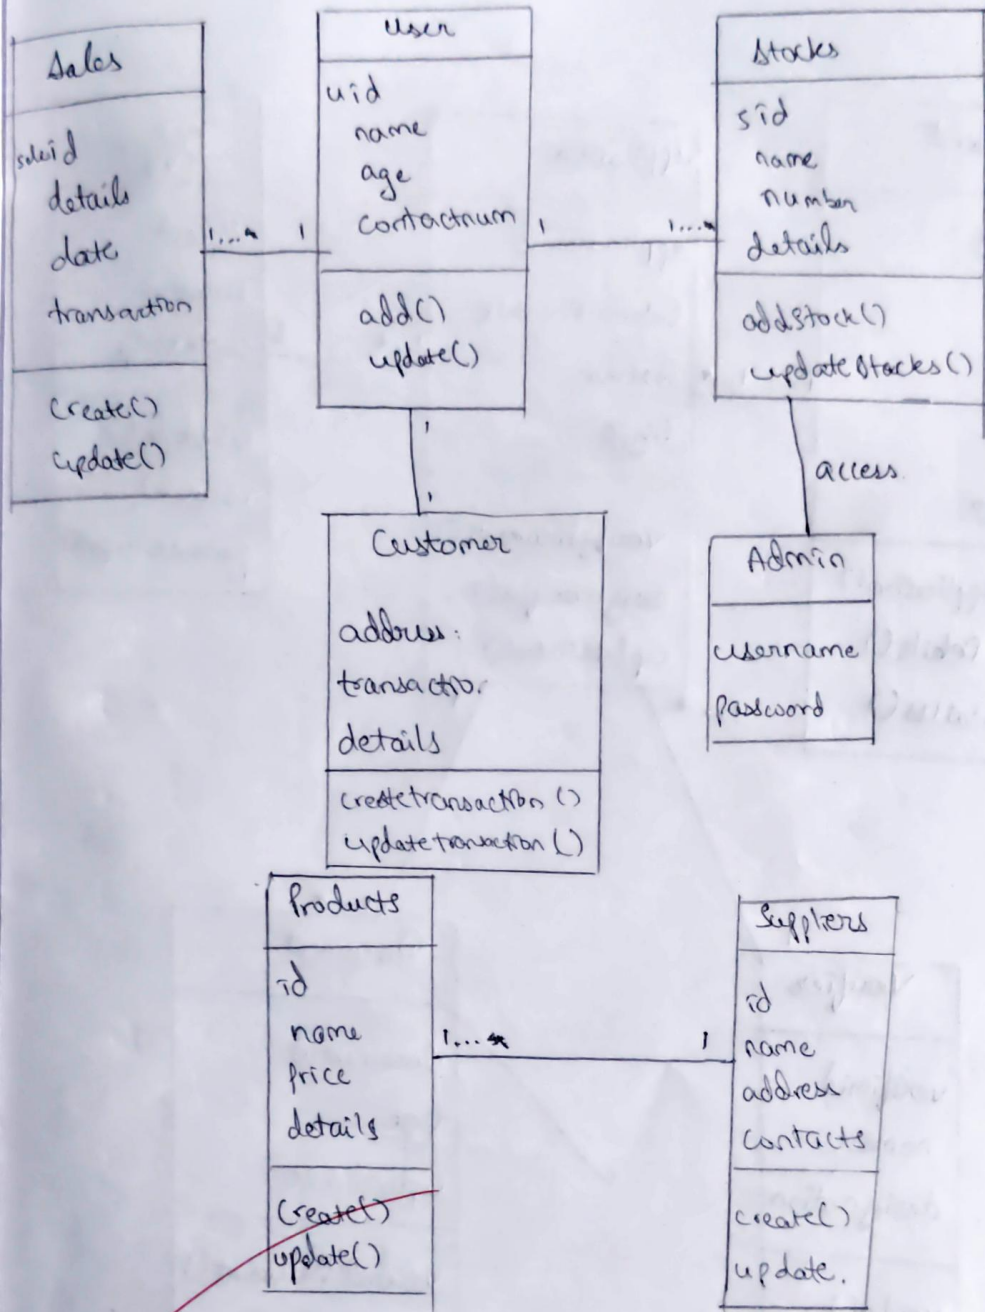 Sales
saleid
details
date
transaction
create()
update()
1...*
1
User
uid
name
age
contactnum
add()
update()
1
1...*
Stocks
sid
name
number
details
addStock()
updateStocks()
access
1
1
Customer
address:
transactio.
details
createtransaction ()
Admin
username
password
Products
id
name
price
details
create()
update()
1...*
1
Suppliers
id
name
address
contacts
create()
update.